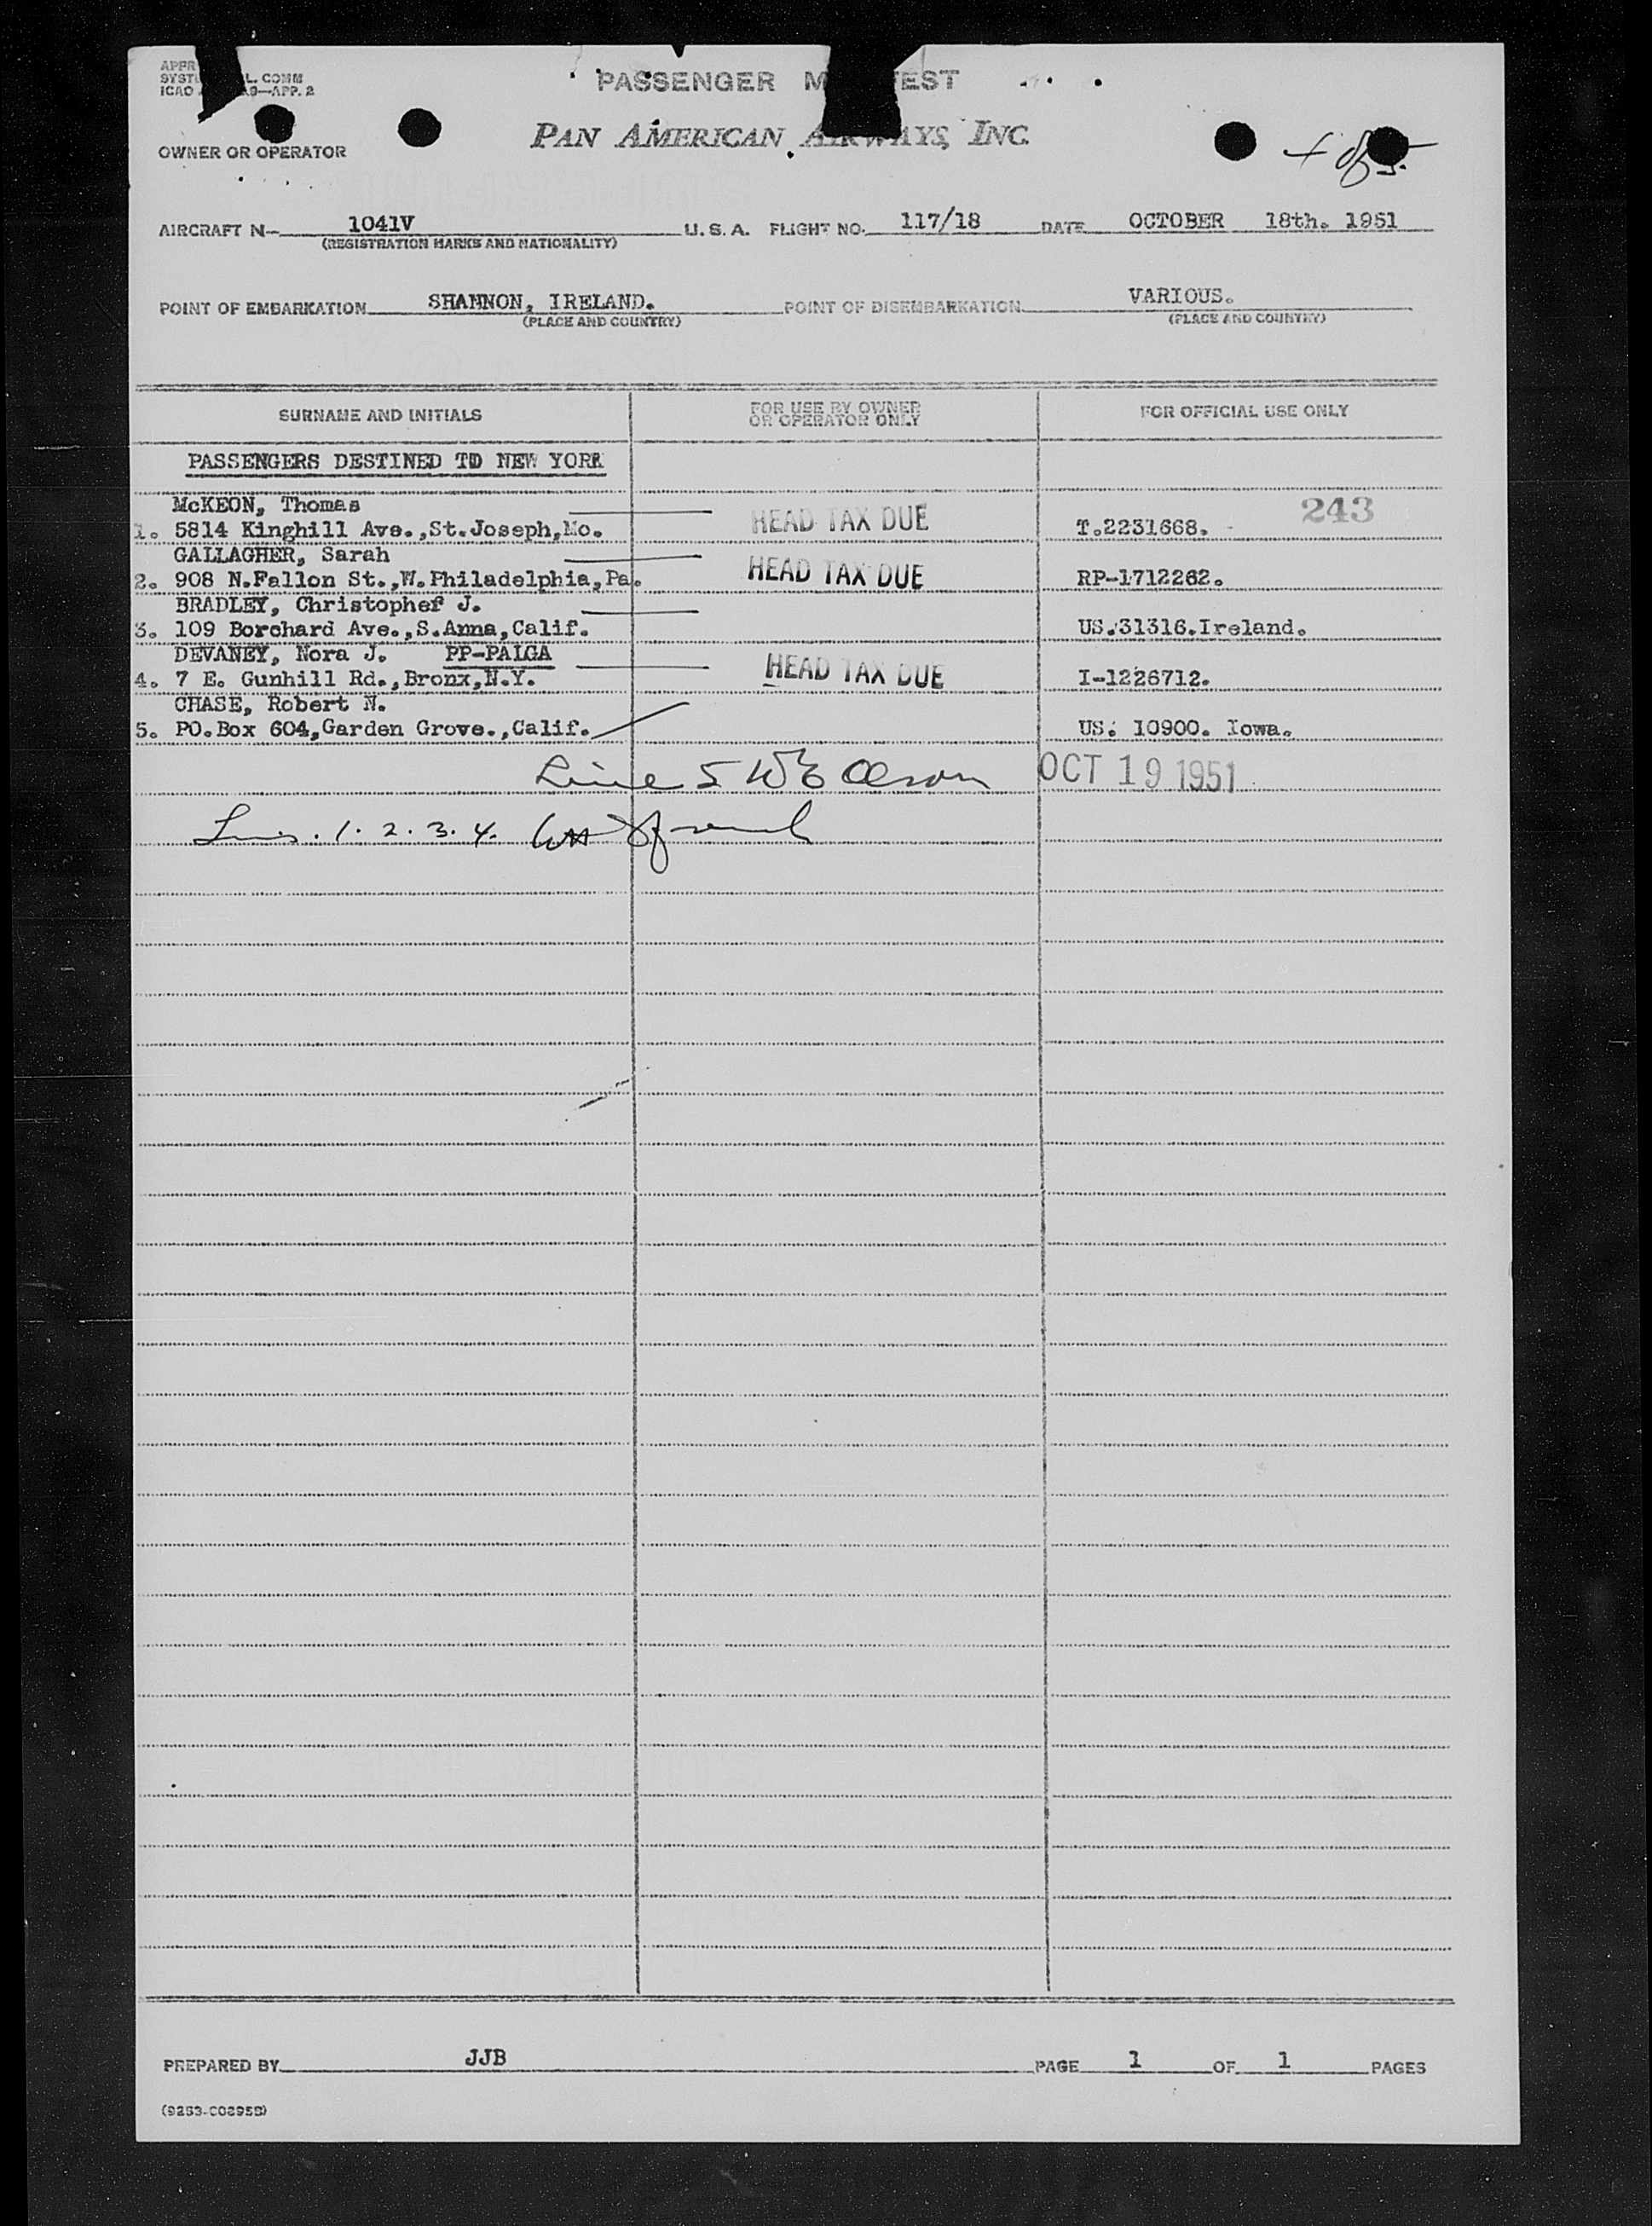 PASSENGER M EST
L. COMM
ICAO 9—APP. 2
OWNER OR OPERATOR
PAN AMERICAN AIRWAYS, INC.
AIRCRAFT N- 1041V U.S.A. FLIGHT NO. 117/18 DATE OCTOBER 18th. 1951
(REGISTRATION MARKS AND NATIONALITY)
POINT OF EMBARKATION SHANNON, IRELAND. POINT OF DISEMBARKATION VARIOUS.
(PLACE AND COUNTRY) (PLACE AND COUNTRY)
SURNAME AND INITIALS FOR USE BY OWNER OR OPERATOR ONLY FOR OFFICIAL USE ONLY
PASSENGERS DESTINED TO NEW YORK
McKEON, Thomas 243
1. 5814 Kinghill Ave.,St.Joseph,Mo. HEAD TAX DUE T.2231668.
GALLAGHER, Sarah
2. 908 N.Fallon St.,W.Philadelphia,Pa. HEAD TAX DUE RP-1712262.
BRADLEY, Christopher J.
3. 109 Borchard Ave.,S.Anna,Calif. US.31316.Ireland.
DEVANEY, Nora J. PP-PAIGA
4. 7 E. Gunhill Rd.,Bronx,N.Y. HEAD TAX DUE I-1226712.
CHASE, Robert N.
5. PO.Box 604,Garden Grove.,Calif. US. 10900. Iowa.
Line 5 Olson OCT 19 1951
1. 2. 3. 4.
PREPARED BY JJB PAGE 1 OF 1 PAGES